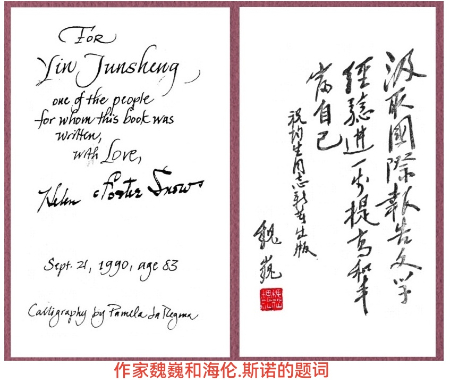 For
Yin Junsheng,
one of the people
for whom this book was
written,
with Love,
Helen Foster Snow
Sept. 21, 1990, age 83
Calligraphy by Pamela La Regina
汲取國際報告文学
經驗進一步提高和丰
富自己
祝均生同志新书出版
魏巍
作家魏巍和海伦.斯诺的题词